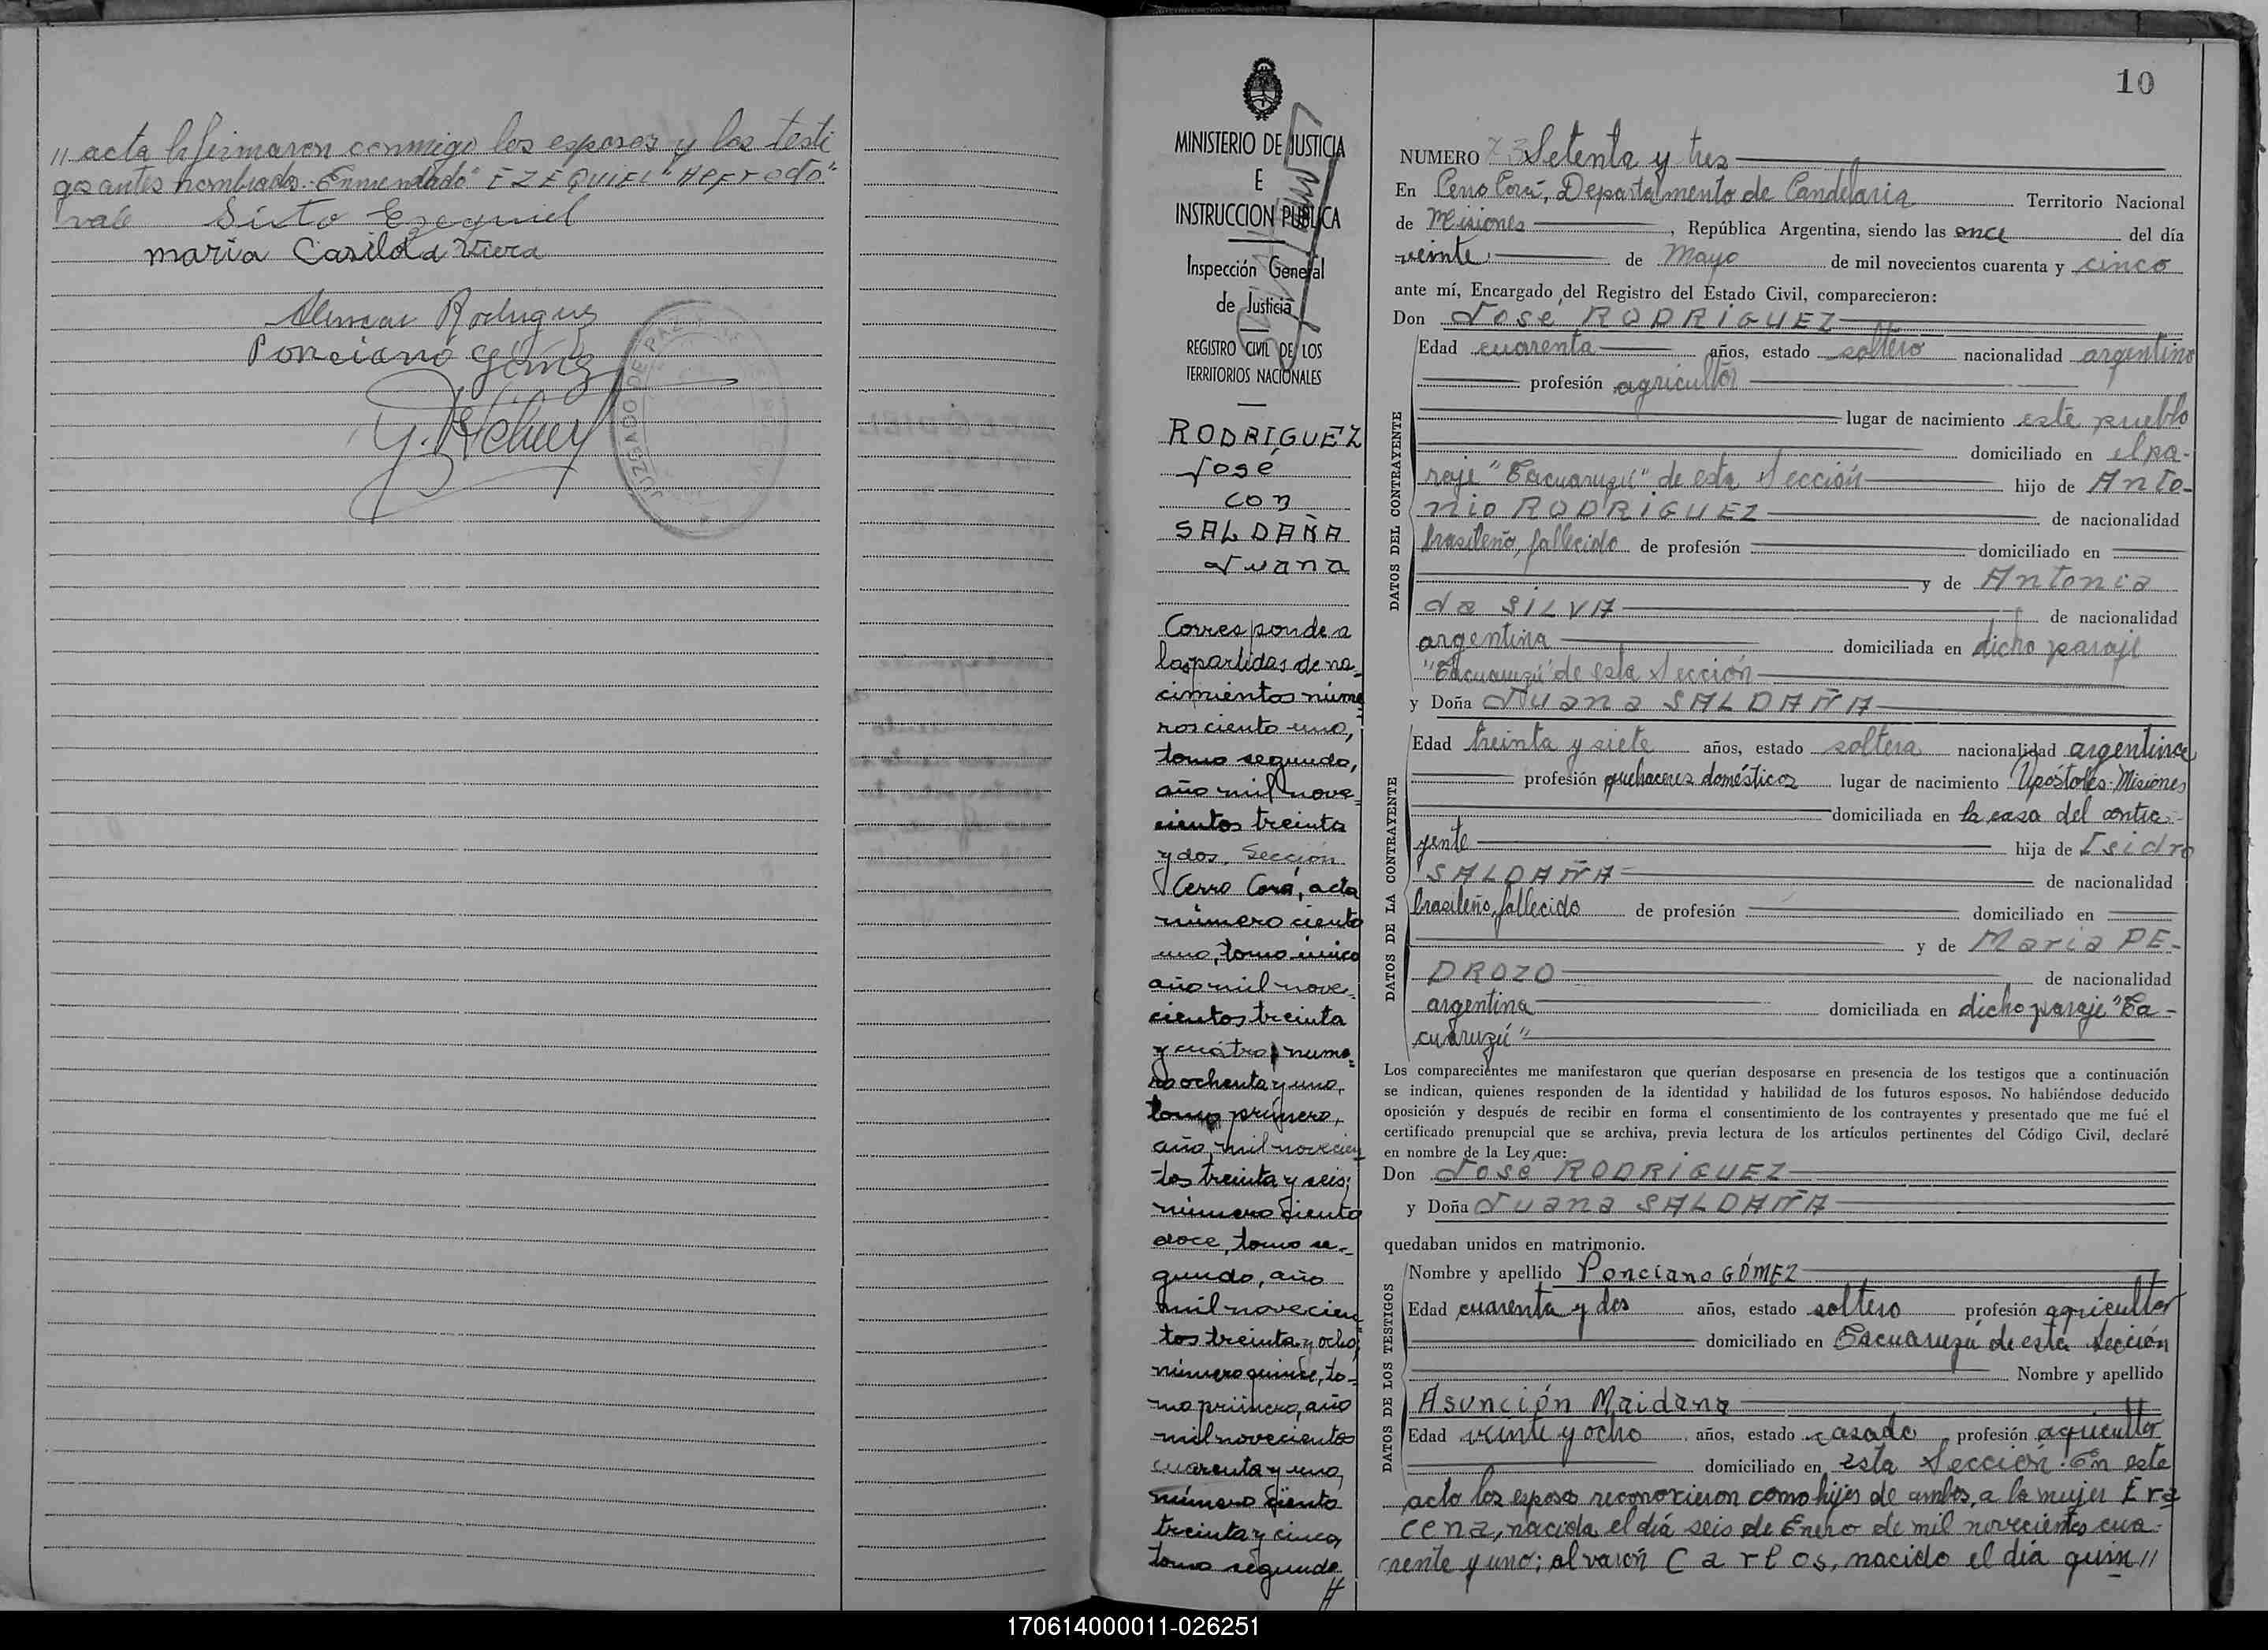 // acta la firmaron conmigo los esposos y los testi
gos antes nombrados. Enmendado "EZEQUIEL"
vale Sixto Ezequiel
maria Casilda Viera
Rodriguez
Ponciano Gómez
JUZGADO DE PAZ
MINISTERIO DE JUSTICIA
E
INSTRUCCION PUBLICA
Inspección General
de Justicia
REGISTRO CIVIL DE LOS
TERRITORIOS NACIONALES
RODRIGUEZ
José
con
SALDAÑA
Juana
Corresponde a
las partidas de na-
cimientos núme
ros ciento uno,
tomo segundo,
año mil nove-
cientos treinta
y dos, Sección
Cerro Corá, acta
número ciento
uno, tomo único
año mil nove-
cientos treinta
y cuatro, núme-
ro ochenta y uno,
tomo primero,
año mil novecien
tos treinta y seis;
número ciento
doce, tomo se-
gundo, año
mil novecien
tos treinta y ocho;
número quince, to-
mo primero, año
mil novecientos
cuarenta y uno,
número ciento
treinta y cinco,
tomo segundo
//
10
NUMERO 73 Setenta y tres
En Cerro Corá, Departamento de Candelaria Territorio Nacional
de Misiones, República Argentina, siendo las once del día
veinte de Mayo de mil novecientos cuarenta y cinco
ante mí, Encargado del Registro del Estado Civil, comparecieron:
Don Jose RODRIGUEZ
DATOS DEL CONTRAYENTE
Edad cuarenta años, estado soltero nacionalidad argentino
profesión agricultor
lugar de nacimiento este pueblo
domiciliado en el pa-
raje "Tacuaruzú" de esta Sección hijo de Anto-
nio RODRIGUEZ de nacionalidad
brasileño, fallecido de profesión domiciliado en
y de Antonia
da SILVA de nacionalidad
argentina domiciliada en dicho paraje
"Tacuaruzú" de esta Sección
y Doña Juana SALDAÑA
DATOS DE LA CONTRAYENTE
Edad treinta y siete años, estado soltera nacionalidad argentina
profesión quehaceres domésticos lugar de nacimiento Apóstoles-Misiones
domiciliada en la casa del contra-
yente hija de Isidro
SALDAÑA de nacionalidad
brasileño, fallecido de profesión domiciliado en
y de Maria PE-
DROZO de nacionalidad
argentina domiciliada en dicho paraje "Ta-
cuaruzú"
Los comparecientes me manifestaron que querían desposarse en presencia de los testigos que a continuación
se indican, quienes responden de la identidad y habilidad de los futuros esposos. No habiéndose deducido
oposición y después de recibir en forma el consentimiento de los contrayentes y presentado que me fué el
certificado prenupcial que se archiva, previa lectura de los artículos pertinentes del Código Civil, declaré
en nombre de la Ley que:
Don Jose RODRIGUEZ
y Doña Juana SALDAÑA
quedaban unidos en matrimonio.
DATOS DE LOS TESTIGOS
Nombre y apellido Ponciano GÓMEZ
Edad cuarenta y dos años, estado soltero profesión agricultor
domiciliado en Tacuaruzú de esta Sección
Nombre y apellido
Asunción Maidana
Edad veinte y ocho años, estado casado profesión agricultor
domiciliado en esta Sección. En este
acto los esposos reconocieron como hijos de ambos, a la mujer Era
cena, nacida el día seis de Enero de mil novecientos cua-
renta y uno; al varón Carlos, nacido el día quin //
170614000011-026251